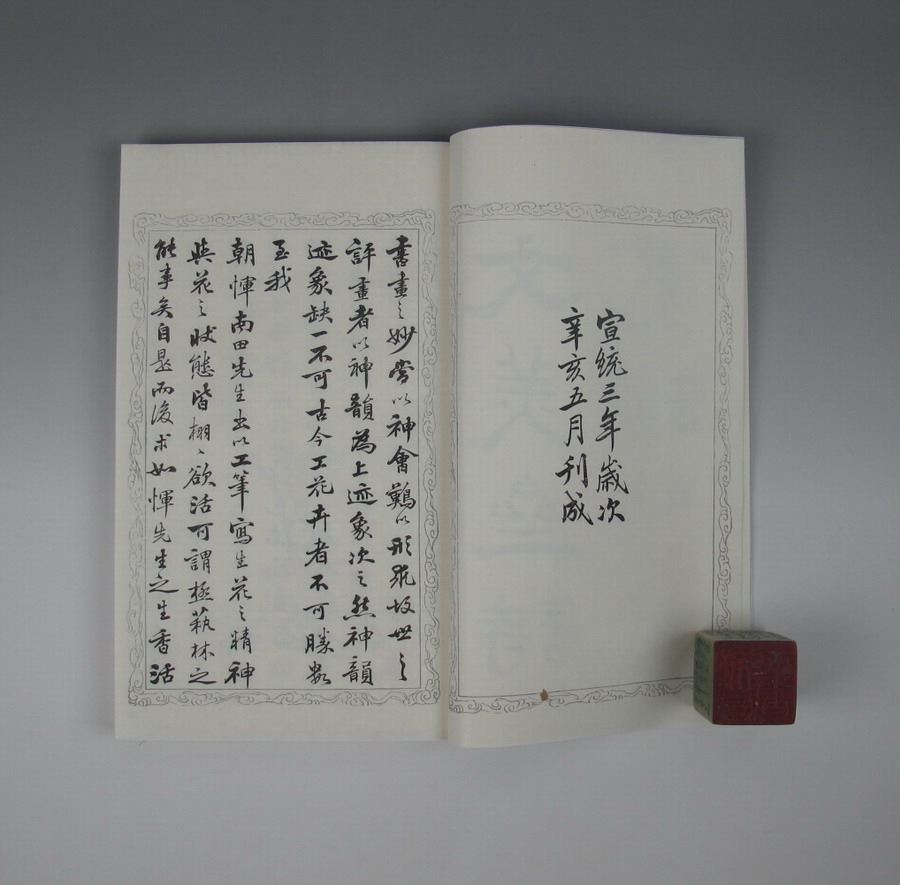 宣統三年歲次
辛亥五月刊成
書畫之妙當以神會難以形求故世之
評畫者以神韻為上迹象次之然神韻
迹象缺一不可古今工花卉者不可勝數
至我
朝惲南田先生出以工筆寫生花之精神
與花之狀態皆栩栩欲活可謂極萟林之
能事矣自是而後求如惲先生之生香活